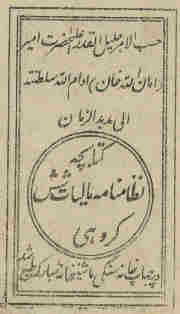 حسب الامر جلیل القدر اعلیحضرت امیر
امان الله خان ادام الله سلطنته
الی مدید الزمان
کتابچه
نظامنامه مالیات شش
کروهی
در چهاپخانه سنگی ماشینخانه مبارکه طبع شد